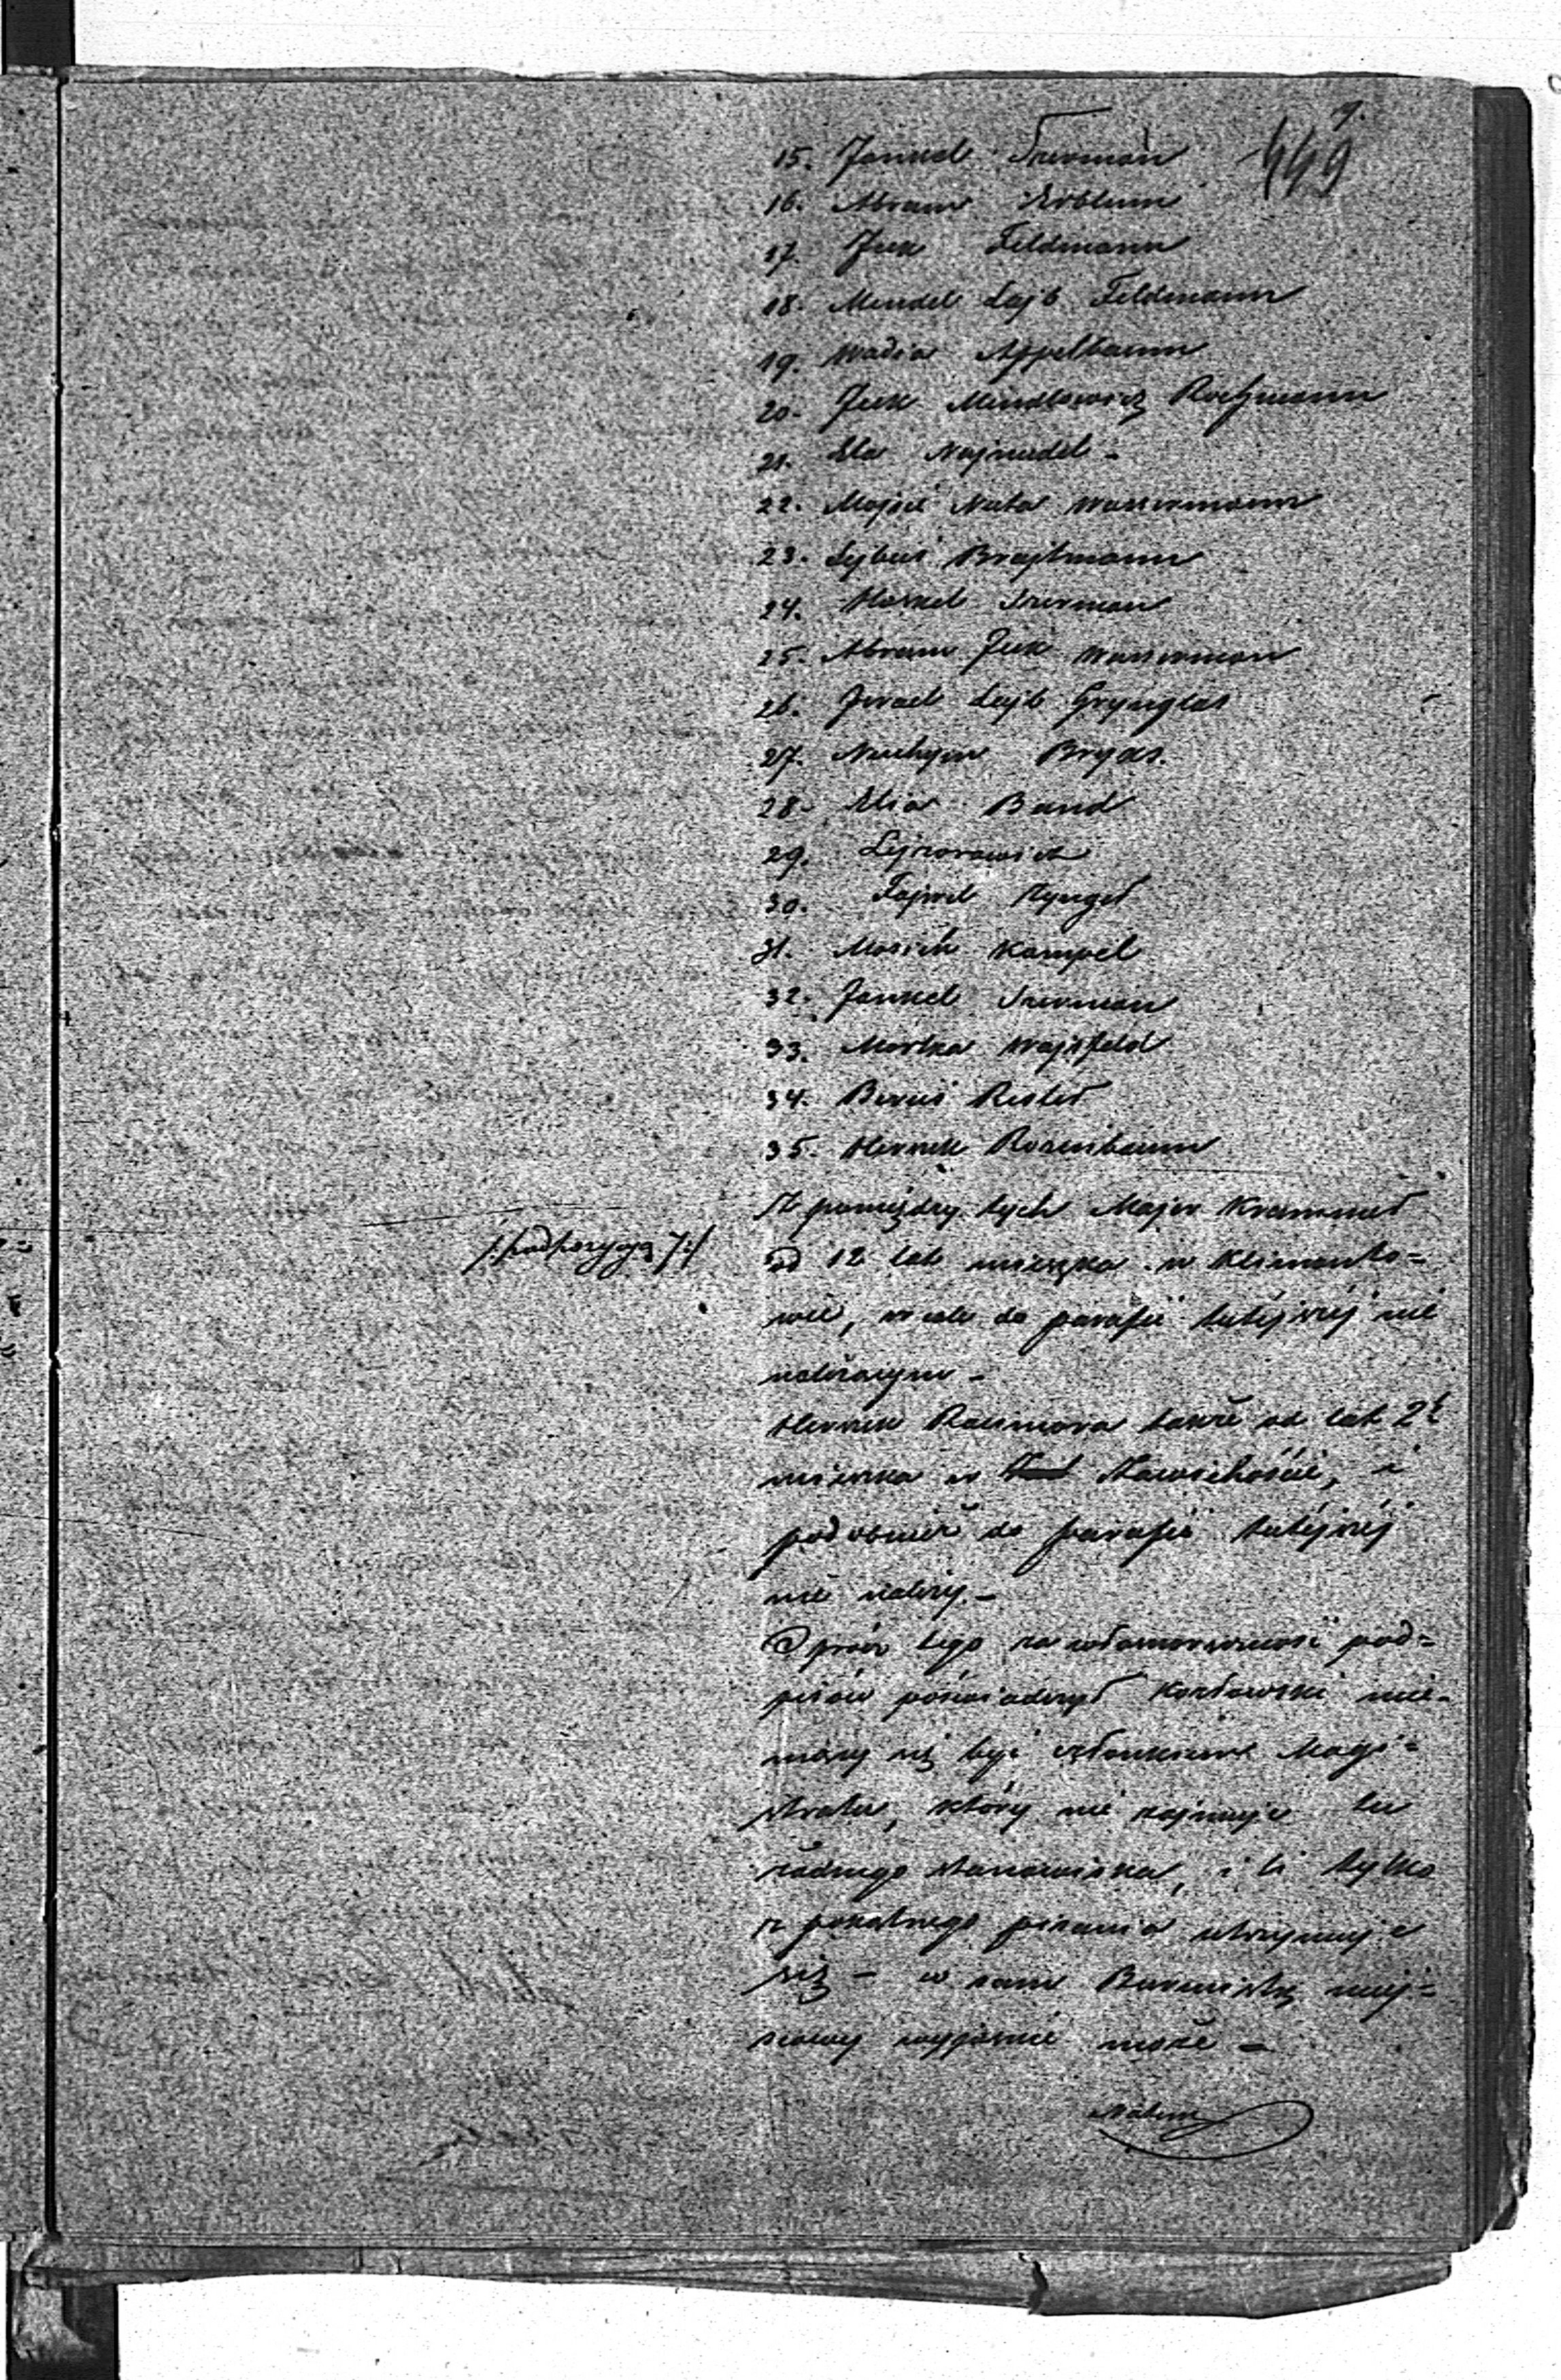 9.
449
15. Jankel Szerman
16. Abram Erblum
17. Icek Feldmann
18. Mendel Lajb Feldmann
19. Wadia Appelbaum
20. Icek Mendlowicz Rochmann
21. Ela Najnudel -
22. Mojsie Nuta Wasserman
23. Lejbuś Brajtmann
24. Herszel Szerman
25. Abram Icek Wasserman
26. Izrael Lejb Grynglas
27. Nuchym Bryks.
28. Elia Band
29. Lejzorowicz
30. Fajwel Kyngel
31. Mosiek Kampel
32. Jankel Szerman
33. Mortka Wajsfeld
34. Beruś Restel
35. Herszek Rosenbaum
Z pomiędzy tych Majer
od 12 lat mieszka w Klimonto=
wie, wcale do parafii tutejszéj nie
należącym -
/: pod pozycyą 7 :/
Herszek także od lat 2ch
mieszka w Zawichoście, i
podobnież do parafii tutejszéj
nie należy -
Oprócz tego za własnoręczność pod=
pisów poświadczył Kozłowski mie-
niący się być członkiem Magi=
stratu, który nie zajmuje tu
żadnego stanowiska, i li tylko
z pokątnego pisania utrzymuje
się - co sam Burmistrz miej=
scowy wyjaśnić może -